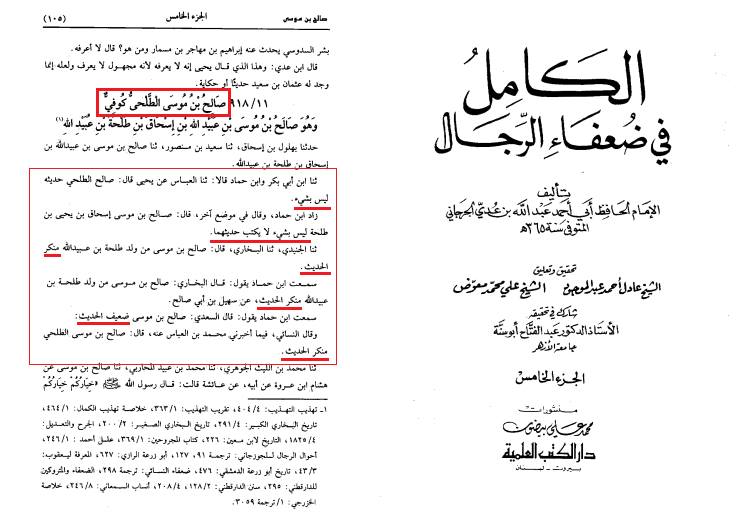 صالح بن موسى
الجزء الخامس
(١٠٥)
بشر السدوسي يحدث عنه إبراهيم بن مهاجر بن مسمار ومن هو؟ قال لا أعرفه.
قال ابن عدي: وهذا الذي قال يحيى إنه لا يعرفه لأنه مجهول لا يعرف ولعله إنما
وجد له عثمان بن سعيد حديثًا أو حكاية.
٩١٨/١١ صَالِحُ بْنُ مُوسَى الطَّلْحِيُّ كُوفِيٌّ
وَهُوَ صَالِحُ بْنُ مُوسَى بْنِ عُبَيْدِ اللهِ بْنِ إِسْحَاقَ بْنِ طَلْحَةَ بْنِ عُبَيْدِ اللهِ(١)
حدثنا بهلول بن إسحاق، ثنا سعيد بن منصور، ثنا صالح بن موسى بن عبيدالله بن
إسحاق بن طلحة بن عبيدالله.
ثنا ابن أبي بكر وابن حماد قالا: ثنا العباس عن يحيى قال: صالح الطلحي حديثه
ليس بشيء.
زاد ابن حماد، وقال في موضع آخر، قال: صالح بن موسى إسحاق بن يحيى بن
طلحة ليس بشيء لا يكتب حديثهما.
ثنا الجنيدي، ثنا البخاري، قال: صالح بن موسى من ولد طلحة بن عبيدالله منكر
الحديث.
سمعت ابن حماد يقول: قال البخاري: صالح بن موسى من ولد طلحة بن
عبيدالله منكر الحديث، عن سهيل بن أبي صالح.
سمعت ابن حماد يقول: قال السعدي: صالح بن موسى ضعيف الحديث:
وقال النسائي، فيما أخبرني محمد بن العباس عنه، قال: صالح بن موسى الطلحي
منكر الحديث.
ثنا محمد بن الليث الجوهري، ثنا محمد بن عبيد المحاربي، ثنا صالح بن موسى عن
هشام ابن عروة عن أبيه، عن عائشة قالت: قال رسول الله ﷺ «خِيَارُكُمْ خِيَارُكُمْ
١ـ تهذيب التهذيب: ٤٠٤/٤، تقريب التهذيب: ٣٦٣/١، خلاصة تهذيب الكمال: ٤٦٤/١،
تاريخ البخاري الكبير: ٢٩١/٤، تاريخ البخاري الصغير: ٢٠٠/٢، الجرح والتعديل:
١٨٢٥/٤، التاريخ لابن معين: ٢٢٦، كتاب المجروحين: ٣٦٩/١، علل أحمد : ٢٤٦/١،
أحوال الرجال للجوزجاني: ترجمة ٩١، ١٢٧، أبو زرعة الرازي: ٦٢٧، المعرفة ليعقوب:
٤٣/٣، تاريخ أبو زرعة الدمشقي: ٤٧٦، ضعفاء النسائي: ترجمة ٢٩٨، الضعفاء والمتروكين
للدارقطني: ٢٩٥، سنن الدارقطني: ١٢٨/٢، ٢٠٨/٤، أنساب السمعاني: ٢٤٦/٨، خلاصة
الخزرجي: ١/ترجمة ٣٠٥٩.
الكامل
في ضعفاء الرجال
تأليف
الإمام الحافظ أبي أحمد عبد الله بن عدي الجرجاني
المتوفى سنة ٣٦٥هـ
تحقيق وتعليق
الشيخ عادل أحمد عبد الموجود الشيخ علي محمد معوض
شارك في تحقيقه
الأستاذ الدكتور عبد الفتاح أبو سنة
جامعة الأزهر
الجزء الخامس
منشورات
محمد علي بيضون
دار الكتب العلمية
بيروت - لبنان